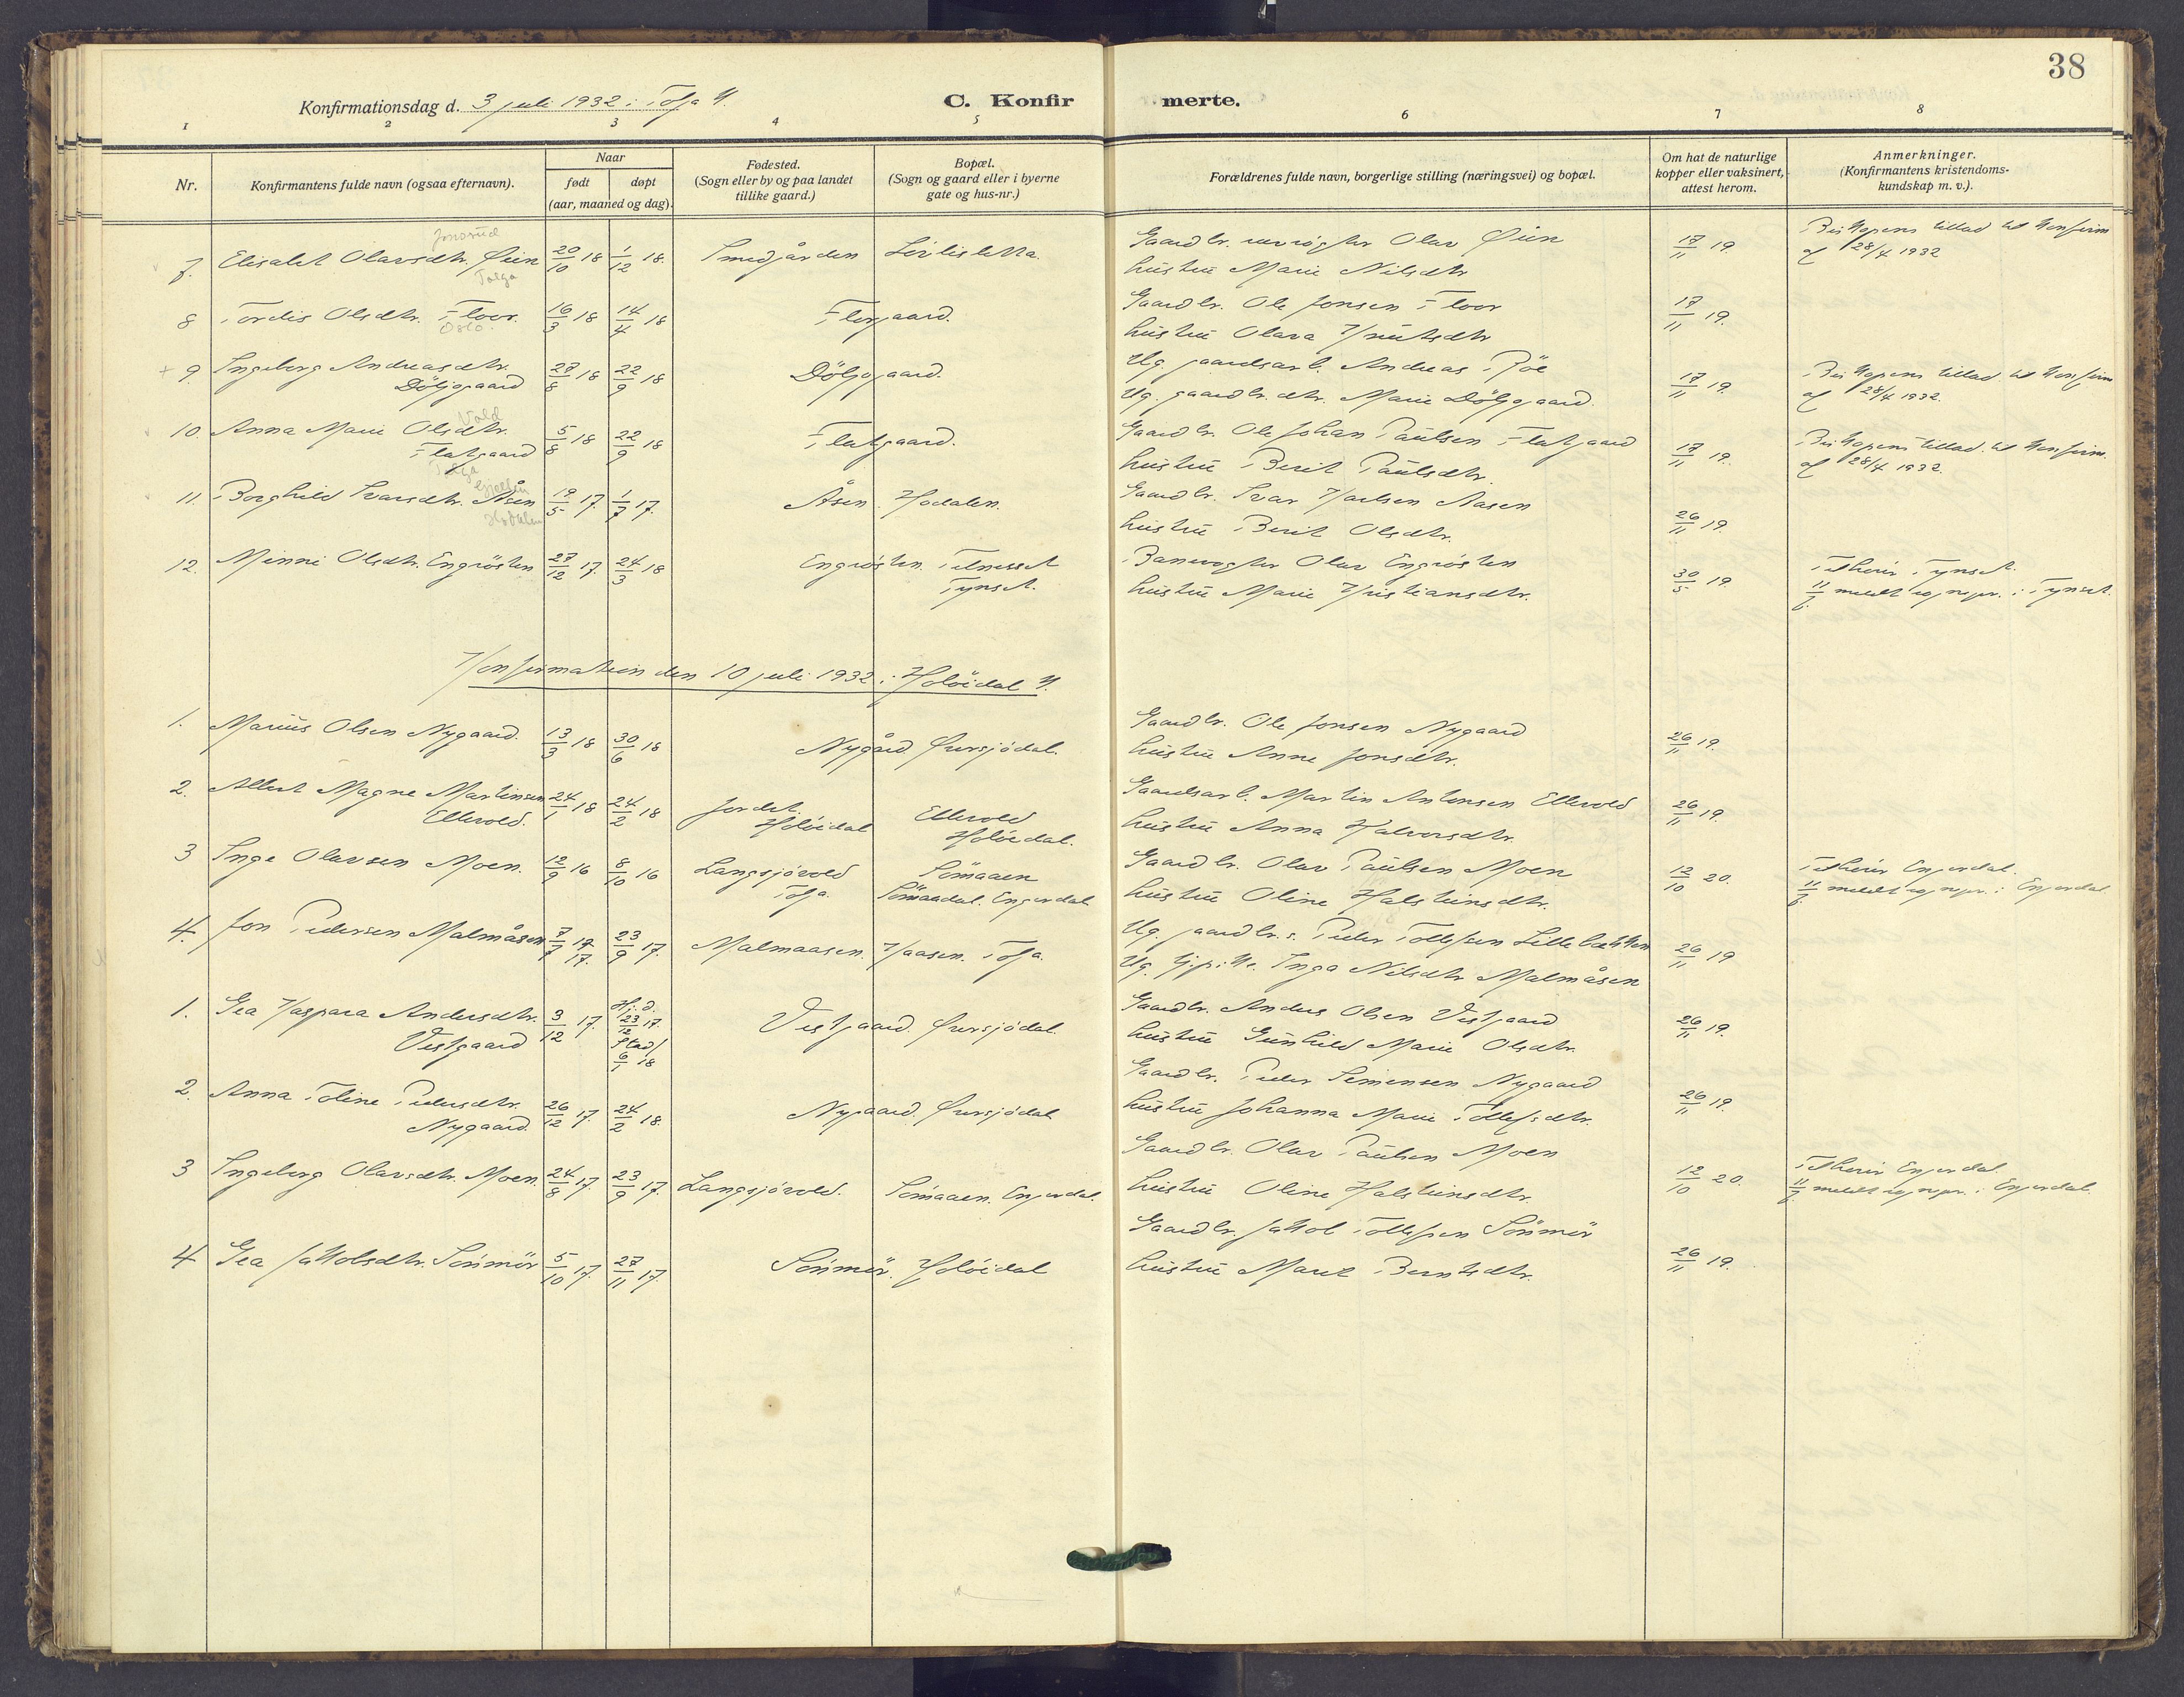 38
Konfirmationsdag d. 3 juli 1932 i Tolga K.
C. Konfirmerte.
1 2 3 4 5 6 7 8
Nr.
Konfirmantens fulde navn (ogsaa efternavn).
Naar
født døpt
(aar, maaned og dag).
Fødested.
(Sogn eller by og paa landet
tillike gaard.)
Bopæl.
(Sogn og gaard eller i byerne
gate og hus-nr.)
Forældrenes fulde navn, borgerlige stilling (næringsvei) og bopæl.
Om hat de naturlige
kopper eller vaksinert,
attest herom.
Anmerkninger.
(Konfirmantens kristendoms-
kundskap m. v.).
Jonsrud
7. Elisabet Olavsdtr. Øien 20/10 18 1/12 18. Smedgården Gaardbr. Olav Øien 17/11 19. Biskopens tillad til Konfirm
Tolga
hustru Marie Nilsdtr af 28/4 1932
8 Tordis Olsdtr. Floor. 16/3 18 14/4 18 Florgaard. Gaardbr. Ole Jonsen Floor 17/11 19.
Oslo.
hustru Olava Knutsdtr
+ 9. Ingeborg Andreasdtr. 27/8 18 22/9 18 Döljogaard. Ug. gaardsarb. Andreas Röe 17/11 19. Biskopens tillad til Konfirm
Döljogaard Ug. gaardbr. dtr. Marie Döljogaard. af 28/4 1932.
Vold
10. Anna Marie Olsdtr. 5/8 18 22/9 18 Flatgaard. Gaardbr. Ole Johan Paulsen Flatgaard 17/11 19. Biskopens tillad. til Konfirm.
Flatgaard hustru Berit Paulsdtr. af 28/4 1932.
Tolga
11. Borghild Ivarsdtr. Åsen 19/5 17. 1/7 17. Åsen. Hodalen. Gaardbr. Ivar Karlsen Aasen 26/11 19.
Hodalen
hustru Berit Olsdtr.
12. Minni Olsdtr. Engrösten 27/12 17. 24/3 18 Engrösten. Telneset Banevogter Olav Engrösten 30/5 19. Tilhører Tynset.
Tynset. hustru Marie Kristiansdtr. 11/7 meldt sognepr. i Tynset.
Konfirmation den 10 juli 1932 i Holöidal K.
1. Marius Olsen Nygaard. 13/3 18 30/6 18 Nygård Øversjödal. Gaardbr. Ole Jonsen Nygaard 26/11 19.
hustru Anne Jonsdtr.
2. Albert Magne Martinsen 24/1 18 24/2 18 Jordet. Ellevold Gaardsarb. Martin Antonsen Ellevold 26/11 19.
Ellevold. Holöidal Holöidal. hustru Anna Halvorsdtr.
3 Inge Olavsen Moen. 12/9 16 8/10 16 Langsjövold Sömaaen Gaardbr. Olav Paulsen Moen 12/10 20. Tilhører Engerdal.
Tolga. Sömaadal. Engerdal hustru Oline Halsteinsdtr. 11/7 meldt sognepr. i Engerdal
4. Jon Pedersen Malmåsen 7/7 17 17. 23/9 17. Malmaasen. Kaasen. Tolga. Ug. gaardbr. s. Peder Tollefsen Lillebakken 26/11 19
Ug. Inga Nilsdtr Malmåsen
1. Gea Kaspara Andersdtr. 3/12 17. Hj. d. 23/12 17. Vestgaard. Øversjödal. Gaardbr. Anders Olsen Vestgaard 26/11 19.
Vestgaard Stadf 6/1 18 hustru Gunhild Marie Olsdtr.
2. Anna Toline Pedersdtr. 26/12 17. 24/2 18. Nygaard. Øversjödal Gaardbr. Peder Simensen Nygaard 26/11 19.
Nygaard. hustru Johanna Marie Tollefsdtr.
3 Ingeborg Olavsdtr. Moen. 24/8 17. 23/9 17. Langsjövold. Sömaaen. Engerdal. Gaardbr. Olav Paulsen Moen 12/10 20. Tilhører Engerdal.
hustru Oline Halsteinsdtr. 11/7 meldt sognepr. i Engerdal.
4 Gea Jakobsdtr. Sönmör 5/10 17. 27/11 17. Sönmör. Holöidal Gaardbr. Jakob Tollefsen Sönmör 26/11 19.
hustru Marit Berntsdtr.